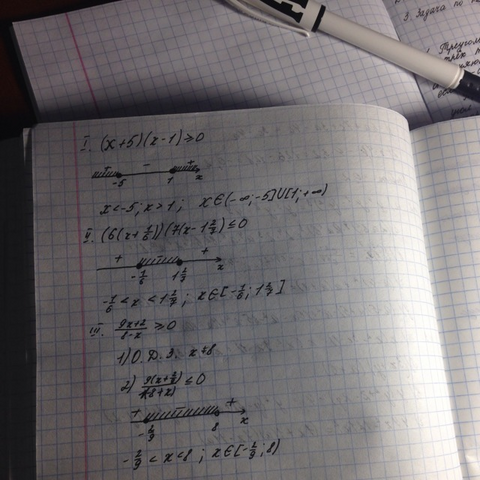 3. Задача по
I. (x+5)(x-1)≥0
- +
-5 1 x
x<-5; x>1; x∈(-∞;-5]∪[1;+∞)
II. (6(x+1/6))(7(x-1 2/7)≤0
+ +
-1/6 1 2/7 x
-1/6 < x < 1 2/7; x∈[-1/6; 1 2/7]
III. 9x+2/8-x ≥0
1) О.Д.З. x≠8
2) 9(x+2/9)/(-8+x) ≤0
+ +
-2/9 8 x
-2/9 < x < 8; x∈[-2/9; 8)